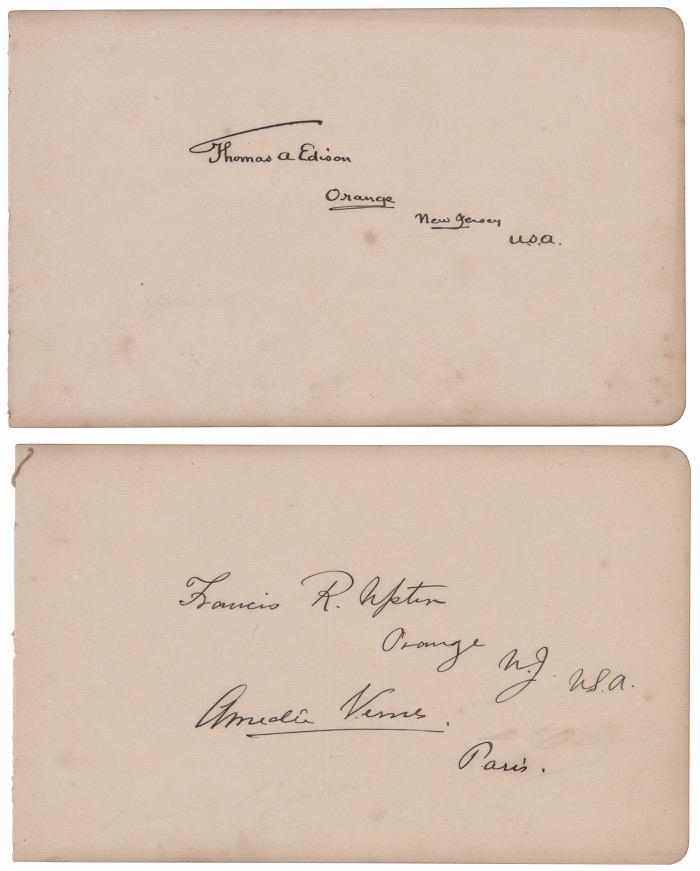 Thomas A Edison
Orange
New Jersey
U.S.A.
Francis R. Upton
Orange N.J. U.S.A.
Amedée Vernes.
Paris.